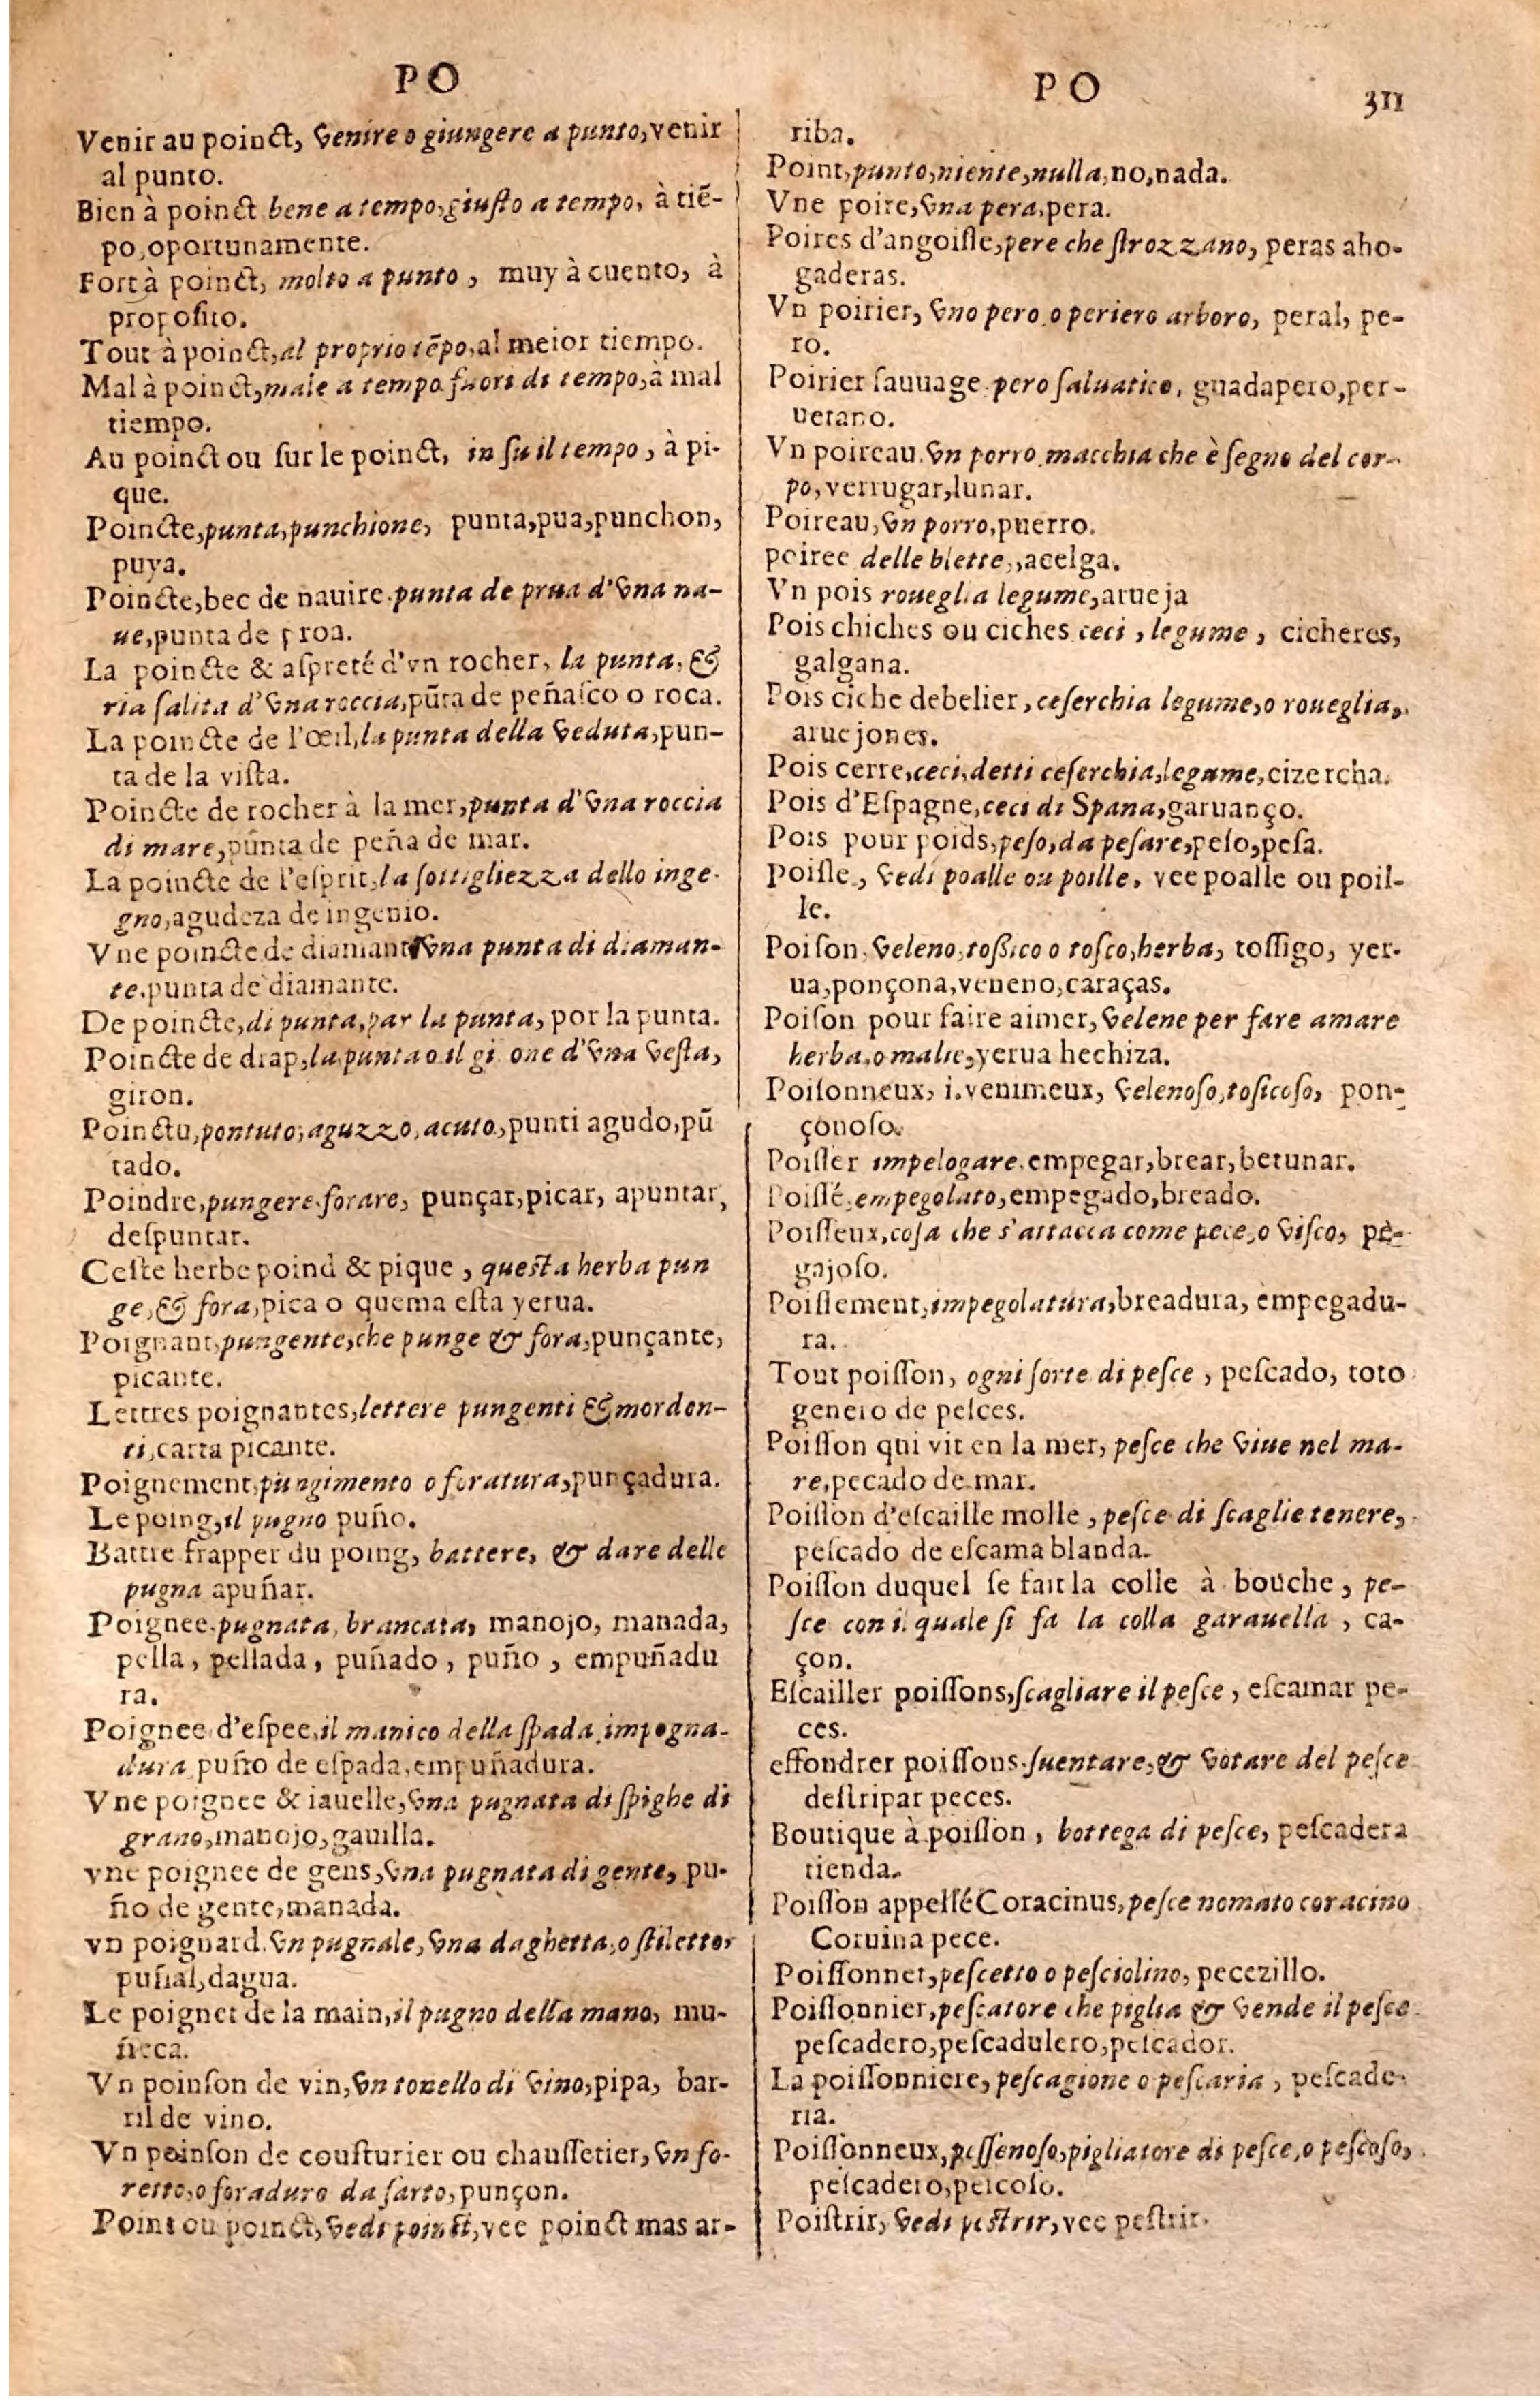 PO
Venir au poinct, venire o giungere a punto, venir
al punto.
Bien à poinct bene a tempo, giuſto a tempo, à tiẽ-
po, oportunamente.
Fort à poinct, molto a punto, muy à cuento, à
propoſito.
Tout à poinct, al proprio tẽpo, al meior tiempo.
Mal à poinct, male a tempo fuori di tempo, à mal
tiempo.
Au poinct ou ſur le poinct, in ſu il tempo, à pi-
que.
Poincte, punta, punchione, punta, pua, punchon,
puya.
Poincte, bec de nauire. punta de prua d'vna na-
ue, punta de proa.
La poincte & aſpreté d'vn rocher, la punta, &
ria ſalita d'vna roccia, pũta de peñaſco o roca.
La poincte de l'œil, la punta della veduta, pun-
ta de la viſta.
Poincte de rocher à la mer, punta d'vna roccia
di mare, punta de peña de mar.
La poincte de l'eſprit, la ſottigliezza dello inge-
gno, agudeza de ingenio.
Vne poincte de diamant vna punta di diaman-
te. punta de diamante.
De poincte, di punta, par la punta, por la punta.
Poincte de drap, la punta o il gi one d'vna veſta,
giron.
Poinctu, pontuto, aguzzo, acuto, punti agudo, pũ
tado.
Poindre, pungere. forare, punçar, picar, apuntar,
deſpuntar.
Ceſte herbe poind & pique, queſta herba pun
ge, & fora, pica o quema eſta yerua.
Poignant, pungente, che punge & fora, punçante,
picante.
Lettres poignantes, lettere pungenti & morden-
ti, carta picante.
Poignement, pungimento o foratura, punçadura.
Le poing, il pugno puño.
Battre frapper du poing, battere, & dare delle
pugna apuñar.
Poignee. pugnata, brancata, manojo, manada,
pella, pellada, puñado, puño, empuñadu
ra.
Poignee d'eſpee, il manico della ſpada, impogna-
dura puño de eſpada, empuñadura.
Vne poignee & iauelle, vna pugnata di ſpighe di
grano, manojo, gauilla.
vne poignee de gens, vna pugnata di gente, pu-
ño de gente, manada.
vn poignard. vn pugnale, vna daghetta, o ſtiletto,
puñal, dagua.
Le poignet de la main, il pugno della mano, mu-
ñeca.
Vn poinſon de vin, vn tonello di vino, pipa, bar-
ril de vino.
Vn poinſon de couſturier ou chauſſetier, vn fo-
retto, o foraduro da ſarto, punçon.
Point ou poinct, vedi poinct, vee poinct mas ar-
PO
311
riba.
Point, punto, niente, nulla, no, nada.
Vne poire, vna pera, pera.
Poires d'angoiſſe, pere che ſtrozzano, peras aho-
gaderas.
Vn poirier, vno pero o periero arboro, peral, pe-
ro.
Poirier ſauuage. pero ſaluatico, guadapero, per-
uetano.
Vn poireau. vn porro. macchia che è ſegno del cor-
po, verrugar, lunar.
Poireau, vn porro, puerro.
poiree delle blette,, acelga.
Vn pois roueglia legume, arueja
Pois chiches ou ciches ceci, legume, cicheres,
galgana.
Pois ciche debelier, ceſerchia legume, o roueglia,
aruejones.
Pois cerre, ceci, detti ceſerchia, legume, cizercha.
Pois d'Eſpagne, ceci di Spana, garuanço.
Pois pour poids, peſo, da peſare, peſo, peſa.
Poiſle, vedi poalle ou poille, vee poalle ou poil-
le.
Poiſon, veleno, toßico o toſco, herba, toſſigo, yer-
ua, ponçona, veneno, caraças.
Poiſon pour faire aimer, velene per fare amare
herba. o malie, yerua hechiza.
Poiſonneux, i. venimeux, velenoſo, toſicoſo, pon-
çonoſo.
Poiſſer impelogare, empegar, brear, betunar.
Poiſſé, empegolato, empegado, breado.
Poiſſeux, coſa che s'attacca come pece, o viſco, pe-
gajoſo.
Poiſſement, impegolatura, breadura, empegadu-
ra.
Tout poiſſon, ogni ſorte di peſce, peſcado, toto
genero de peſces.
Poiſſon qui vit en la mer, peſce che viue nel ma-
re, pecado de mar.
Poiſſon d'eſcaille molle, peſce di ſcaglie tenere,
peſcado de eſcama blanda.
Poiſſon duquel ſe fait la colle à bouche, pe-
ſce con il quale ſi fa la colla garauella, ca-
çon.
Eſcailler poiſſons, ſcagliare il peſce, eſcamar pe-
ces.
effondrer poiſſons. ſuentare, & votare del peſce
deſtripar peces.
Boutique à poiſſon, bottega di peſce, peſcadera
tienda.
Poiſſon appellé Coracinus, peſce nomato coracino
Coruina pece.
Poiſſonnet, peſcetto o peſciolino, pecezillo.
Poiſſonnier, peſcatore che piglia & vende il peſce
peſcadero, peſcadulero, peſcador.
La poiſſonniere, peſcagione o peſcaria, peſcade-
ria.
Poiſſonneux, peſſenoſo, pigliatore di peſce, o peſcoſo,
peſcadero, peſcoſo.
Poiſtrir, vedi peſtrir, vee peſtrir.